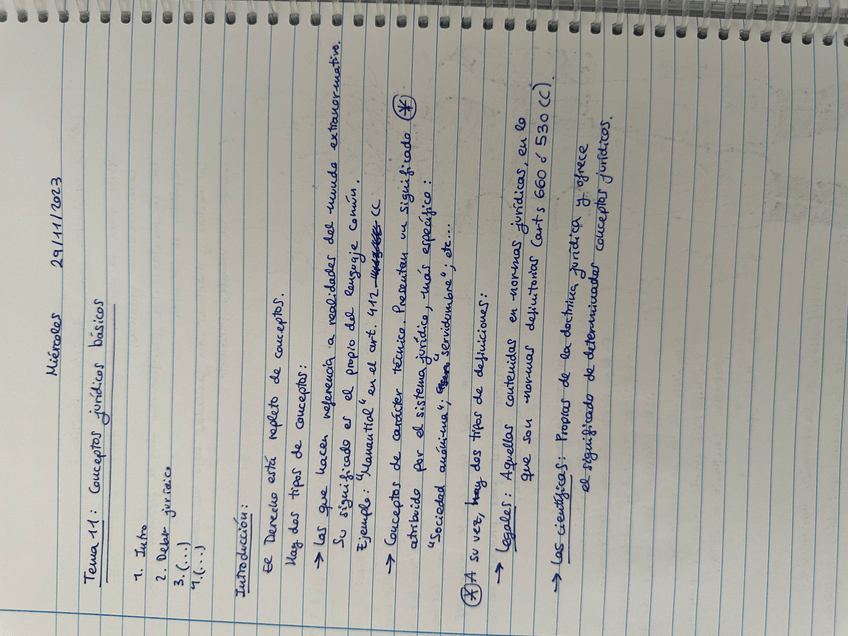 Miércoles 29/11/2023
Tema 11: Conceptos jurídicos básicos
1. Intro
2. Deber jurídico
3. (...)
4. (...)
Introducción:
El Derecho está repleto de conceptos.
Hay dos tipos de conceptos:
→ Los que hacen referencia a realidades del mundo extranormativo.
Su significado es el propio del lenguaje común.
Ejemplo: "Manantial" en el art. 412 CC
→ Conceptos de carácter técnico. Presentan un significado *
atribuido por el sistema jurídico, más específico:
"Sociedad anónima"; "servidumbre"; etc...
* A su vez, hay dos tipos de definiciones:
→ Legales: Aquellas contenidas en normas jurídicas, en lo
que son normas definitorias (arts 660 ó 530 CC).
→ Las científicas: Propias de la doctrina jurídica y ofrece
el significado de determinados conceptos jurídicos.